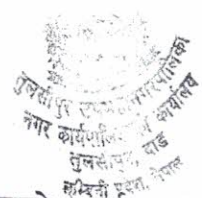 तुलसीपुर उपमहानगरपालिका
नगर कार्यपालिकाको कार्यालय
तुलसीपुर, दाङ
लुम्बिनी प्रदेश, नेपाल